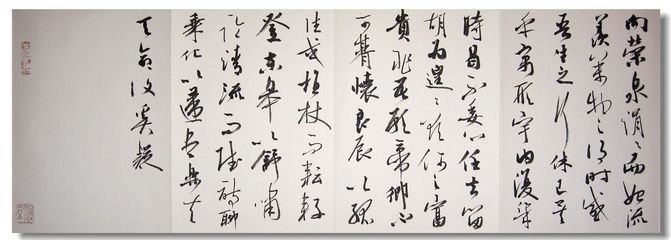 向榮泉涓〻而始流
羨萬物之得时感
吾生之行休已矣
乎寓形宇内復幾
時曷不委心任去留
胡为遑〻欲何之富
貴非吾願帝鄉不
可期懷良辰以孤
往或植杖而耘耔
登東皋以舒嘯
臨清流而賦詩聊
乘化以歸盡樂夫
天命復奚疑